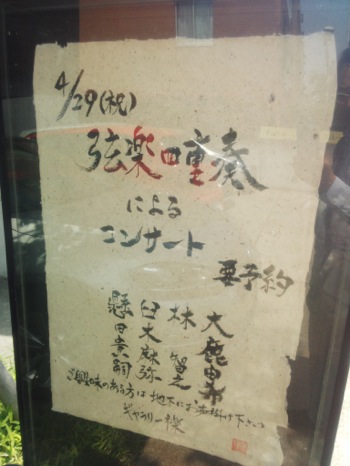 4/29(祝)
弦楽四重奏
による
コンサート
要予約
大鹿由希
林 智之
臼木麻弥
懸田貴嗣
ご興味のある方は地下にお出掛け下さい
ギャラリー